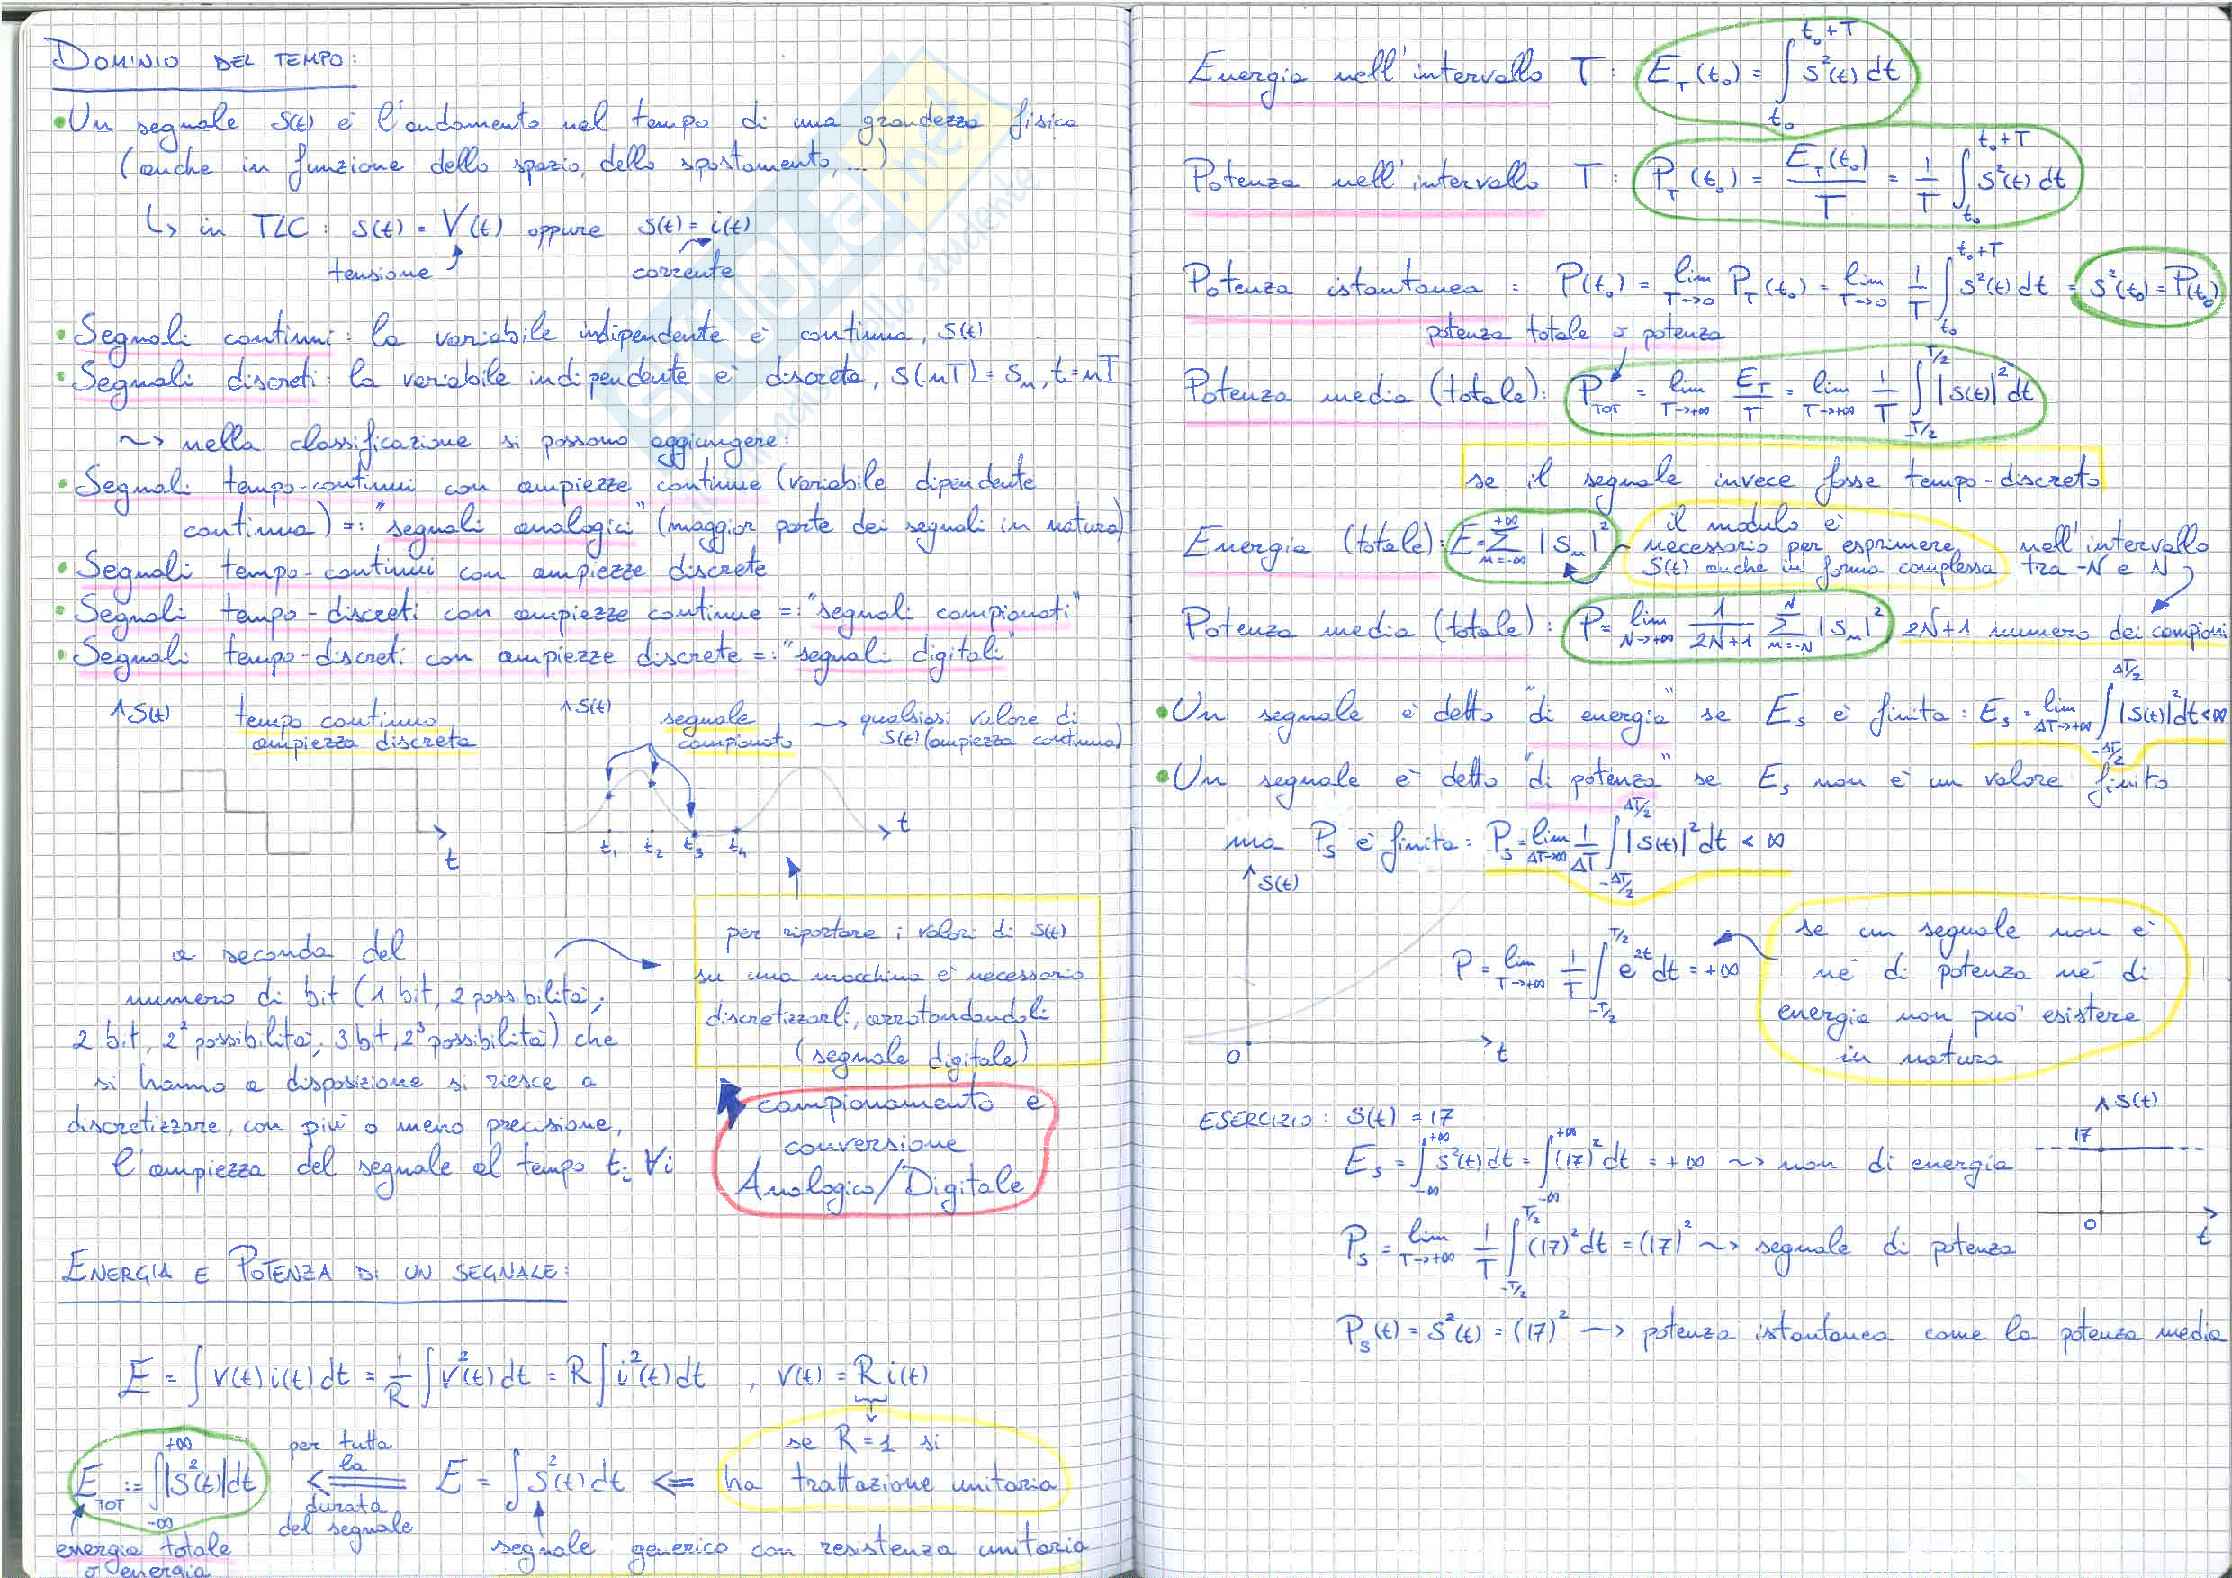 DOMINIO DEL TEMPO:
• Un segnale s(t) è l'andamento nel tempo di una grandezza fisica
(anche in funzione dello spazio, dello spostamento, ...)
↳ in TLC: s(t) = V(t) oppure s(t) = i(t)
tensione corrente
• Segnali continui: la variabile indipendente è continua, s(t)
• Segnali discreti: la variabile indipendente è discreta, s(nT) = sₙ, t=nT
~> nella classificazione si possono aggiungere:
• Segnali tempo-continui con ampiezze continue (variabile dipendente
continua) =: "segnali analogici" (maggior parte dei segnali in natura)
• Segnali tempo-continui con ampiezze discrete
• Segnali tempo-discreti con ampiezze continue =: "segnali campionati"
• Segnali tempo-discreti con ampiezze discrete =: "segnali digitali"
s(t) tempo continuo
ampiezza discreta
t
s(t) segnale → qualsiasi valore di
campionato s(t) (ampiezza continua)
t₁ t₂ t₃ t₄ t
a seconda del
numero di bit (1 bit, 2 possibilità;
2 bit, 2² possibilità; 3 bit, 2³ possibilità) che
si hanno a disposizione si riesce a
discretizzare, con più o meno precisione,
l'ampiezza del segnale al tempo tᵢ ∀i
per riportare i valori di s(t)
su una macchina è necessario
discretizzarli, arrotondandoli
(segnale digitale)
campionamento e
conversione
Analogico/Digitale
ENERGIA E POTENZA DI UN SEGNALE:
E = ∫ v(t) i(t) dt = 1/R ∫ v²(t) dt = R ∫ i²(t) dt , v(t) = R i(t)
se R=1 si
ha trattazione unitaria
E_TOT := ∫_{-∞}^{+∞} |s²(t)| dt <== per tutta la durata del segnale E = ∫ s²(t) dt <=
energia totale
o energia
segnale generico con resistenza unitaria
Energia nell'intervallo T: E_T(t₀) = ∫_{t₀}^{t₀+T} s²(t) dt
Potenza nell'intervallo T: P_T(t₀) = E_T(t₀)/T = 1/T ∫_{t₀}^{t₀+T} s²(t) dt
Potenza istantanea: P(t₀) = lim_{T→0} P_T(t₀) = lim_{T→0} 1/T ∫_{t₀}^{t₀+T} s²(t) dt = s²(t₀) = P(t₀)
potenza totale o potenza
Potenza media (totale): P_TOT = lim_{T→+∞} E_T/T = lim_{T→+∞} 1/T ∫_{-T/2}^{T/2} |s(t)|² dt
se il segnale invece fosse tempo-discreto
Energia (totale): E = Σ_{n=-∞}^{+∞} |sₙ|²
il modulo è
necessario per esprimere
s(t) anche in forma complessa
nell'intervallo
tra -N e N
Potenza media (totale): P = lim_{N→+∞} 1/(2N+1) Σ_{n=-N}^{N} |sₙ|² 2N+1 numero dei campioni
• Un segnale è detto "di energia" se E_s è finita: E_s = lim_{ΔT→+∞} ∫_{-ΔT/2}^{ΔT/2} |s(t)|² dt < ∞
• Un segnale è detto "di potenza" se E_s non è un valore finito
ma P_s è finita: P_s = lim_{ΔT→∞} 1/ΔT ∫_{-ΔT/2}^{ΔT/2} |s(t)|² dt < ∞
s(t)
0 t
P = lim_{T→+∞} 1/T ∫_{-T/2}^{T/2} e^{2t} dt = +∞
se un segnale non è
nè di potenza nè di
energia non può esistere
in natura
ESERCIZIO: s(t) = 17
E_s = ∫_{-∞}^{+∞} s²(t) dt = ∫_{-∞}^{+∞} (17)² dt = +∞ ~> non di energia
P_s = lim_{T→+∞} 1/T ∫_{-T/2}^{T/2} (17)² dt = (17)² ~> segnale di potenza
P_s(t) = s²(t) = (17)² → potenza istantanea come la potenza media
s(t)
17
0
t